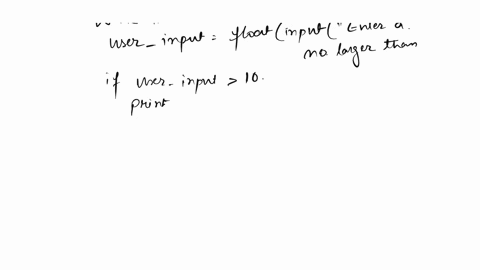 user_input = float(input("Enter a
no larger than
if user_input > 10.
print